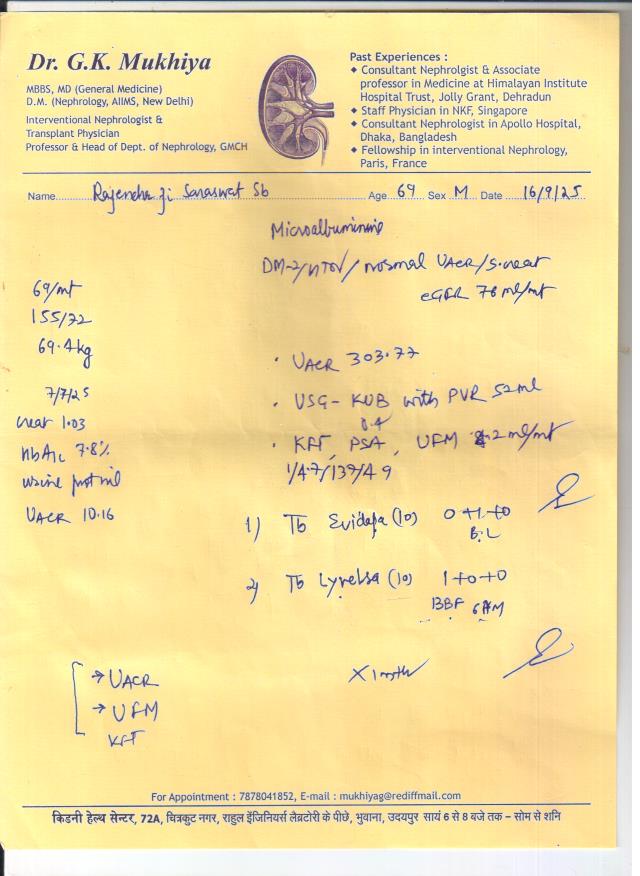 Dr. G.K. Mukhiya
MBBS, MD (General Medicine)
D.M. (Nephrology, AIIMS, New Delhi)
Interventional Nephrologist &
Transplant Physician
Professor & Head of Dept. of Nephrology, GMCH
Past Experiences :
◆ Consultant Nephrolgist & Associate
professor in Medicine at Himalayan Institute
Hospital Trust, Jolly Grant, Dehradun
◆ Staff Physician in NKF, Singapore
◆ Consultant Nephrologist in Apollo Hospital,
Dhaka, Bangladesh
◆ Fellowship in interventional Nephrology,
Paris, France
Name Rajendra Ji Saraswat Sb Age 69 Sex M Date 16/9/25
DM-2/HTN/normal UACR/S.creat
eGFR 78 ml/mt
69/mt
155/72
69.4kg
7/7/25
creat 1.03
HbA1c 7.8%
urine prot nil
UACR 10.16
• UACR 303.77
• USG- KUB with PVR 52ml
0.4
• KFT, PSA, UFM
1/4.7/139/4.9
1) Tb Evidapa (10) 0+1+0
B.L
2) Tb (10) 1+0+0
BBF 6AM
X 1 month
→ UACR
→ UFM
KFT
For Appointment : 7878041852, E-mail : mukhiyag@rediffmail.com
किडनी हेल्थ सेन्टर, 72A, चित्रकुट नगर, राहुल इंजिनियर्स लैब्रटोरी के पीछे, भुवाना, उदयपुर सायं 6 से 8 बजे तक – सोम से शनि